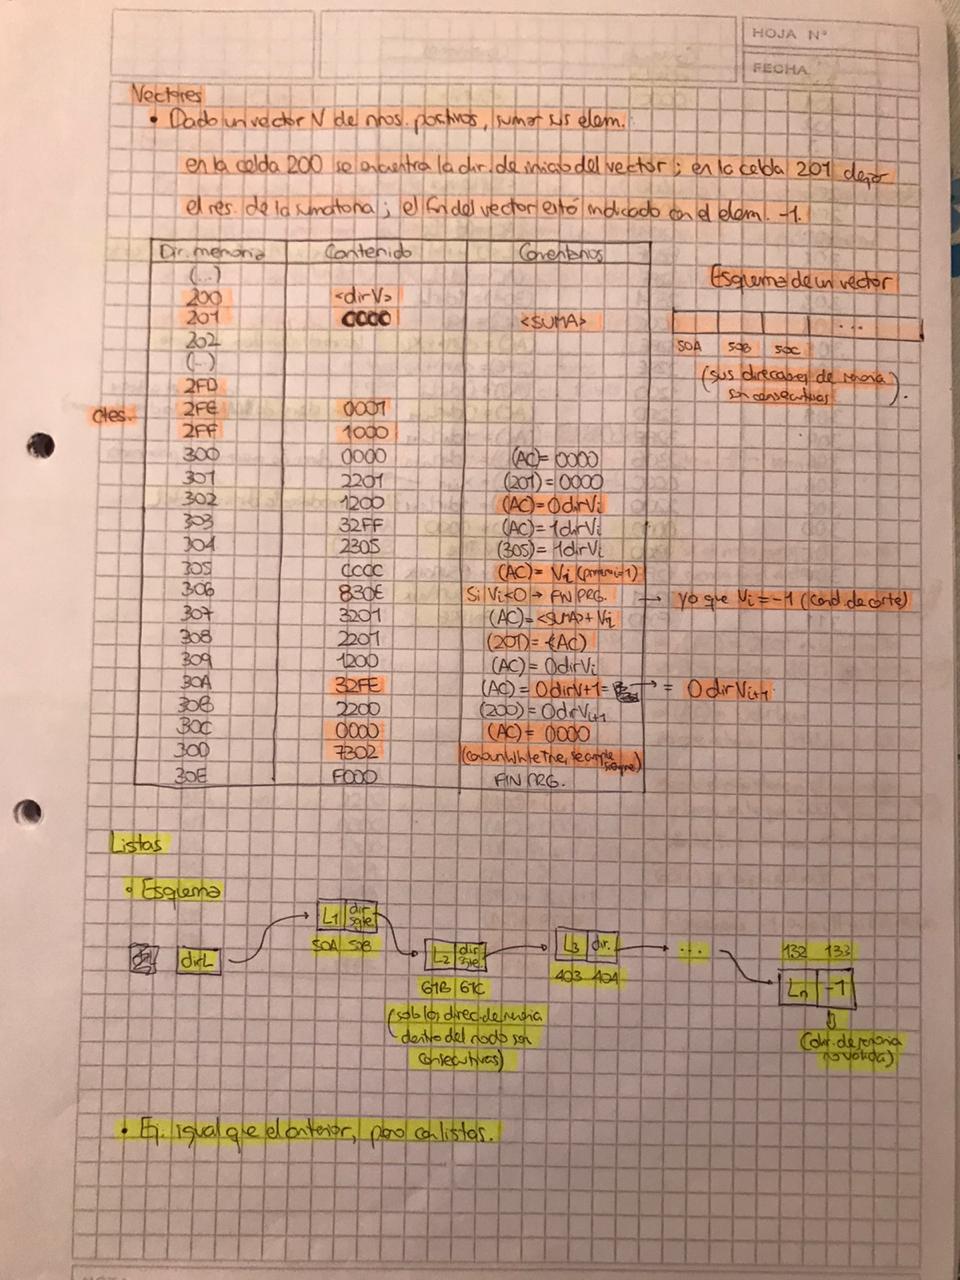 HOJA Nº
FECHA
Vectores
• Dado un vector N de nros. positivos, sumar sus elem.
en la celda 200 se encuentra la dir. de inicio del vector; en la celda 201 dejar
el res. de la sumatoria; el fin del vector está indicado con el elem. -1.
Dir. memoria Contenido Comentarios
(...)
200 <dirV>
201 0000 <SUMA>
202
(...)
2FD
ctes. 2FE 0001
2FF 1000
300 0000 (AC)= 0000
301 2201 (201)= 0000
302 1200 (AC)= 0dirVi
303 32FF (AC)= 1dirVi
304 2305 (305)= 1dirVi
305 CCCC (AC)= Vi (primero i=1)
306 830E Si Vi<0 → FIN PRG. → ya que Vi=-1 (cond. de corte)
307 3201 (AC)= <SUMA>+Vi
308 2201 (201)= (AC)
309 1200 (AC)= 0dirVi
30A 32FE (AC)= 0dirV+1= → = 0dirVi+1
30B 2200 (200)= 0dirVi+1
30C 0000 (AC)= 0000
30D 7302 (como un While True, se cumple siempre)
30E F000 FIN PRG.
Esquema de un vector
...
50A 50B 50C
(sus direcciones de memoria
son consecutivas).
Listas
• Esquema
dirL
L1 dir sgte
50A 50B
L2 dir sgte.
61B 61C
(solo las direc. de memoria
dentro del nodo son
consecutivas)
L3 dir.
403 404
...
132 133
Ln -1
(dir. de memoria
no válida)
• Ej. igual que el anterior, pero con listas.